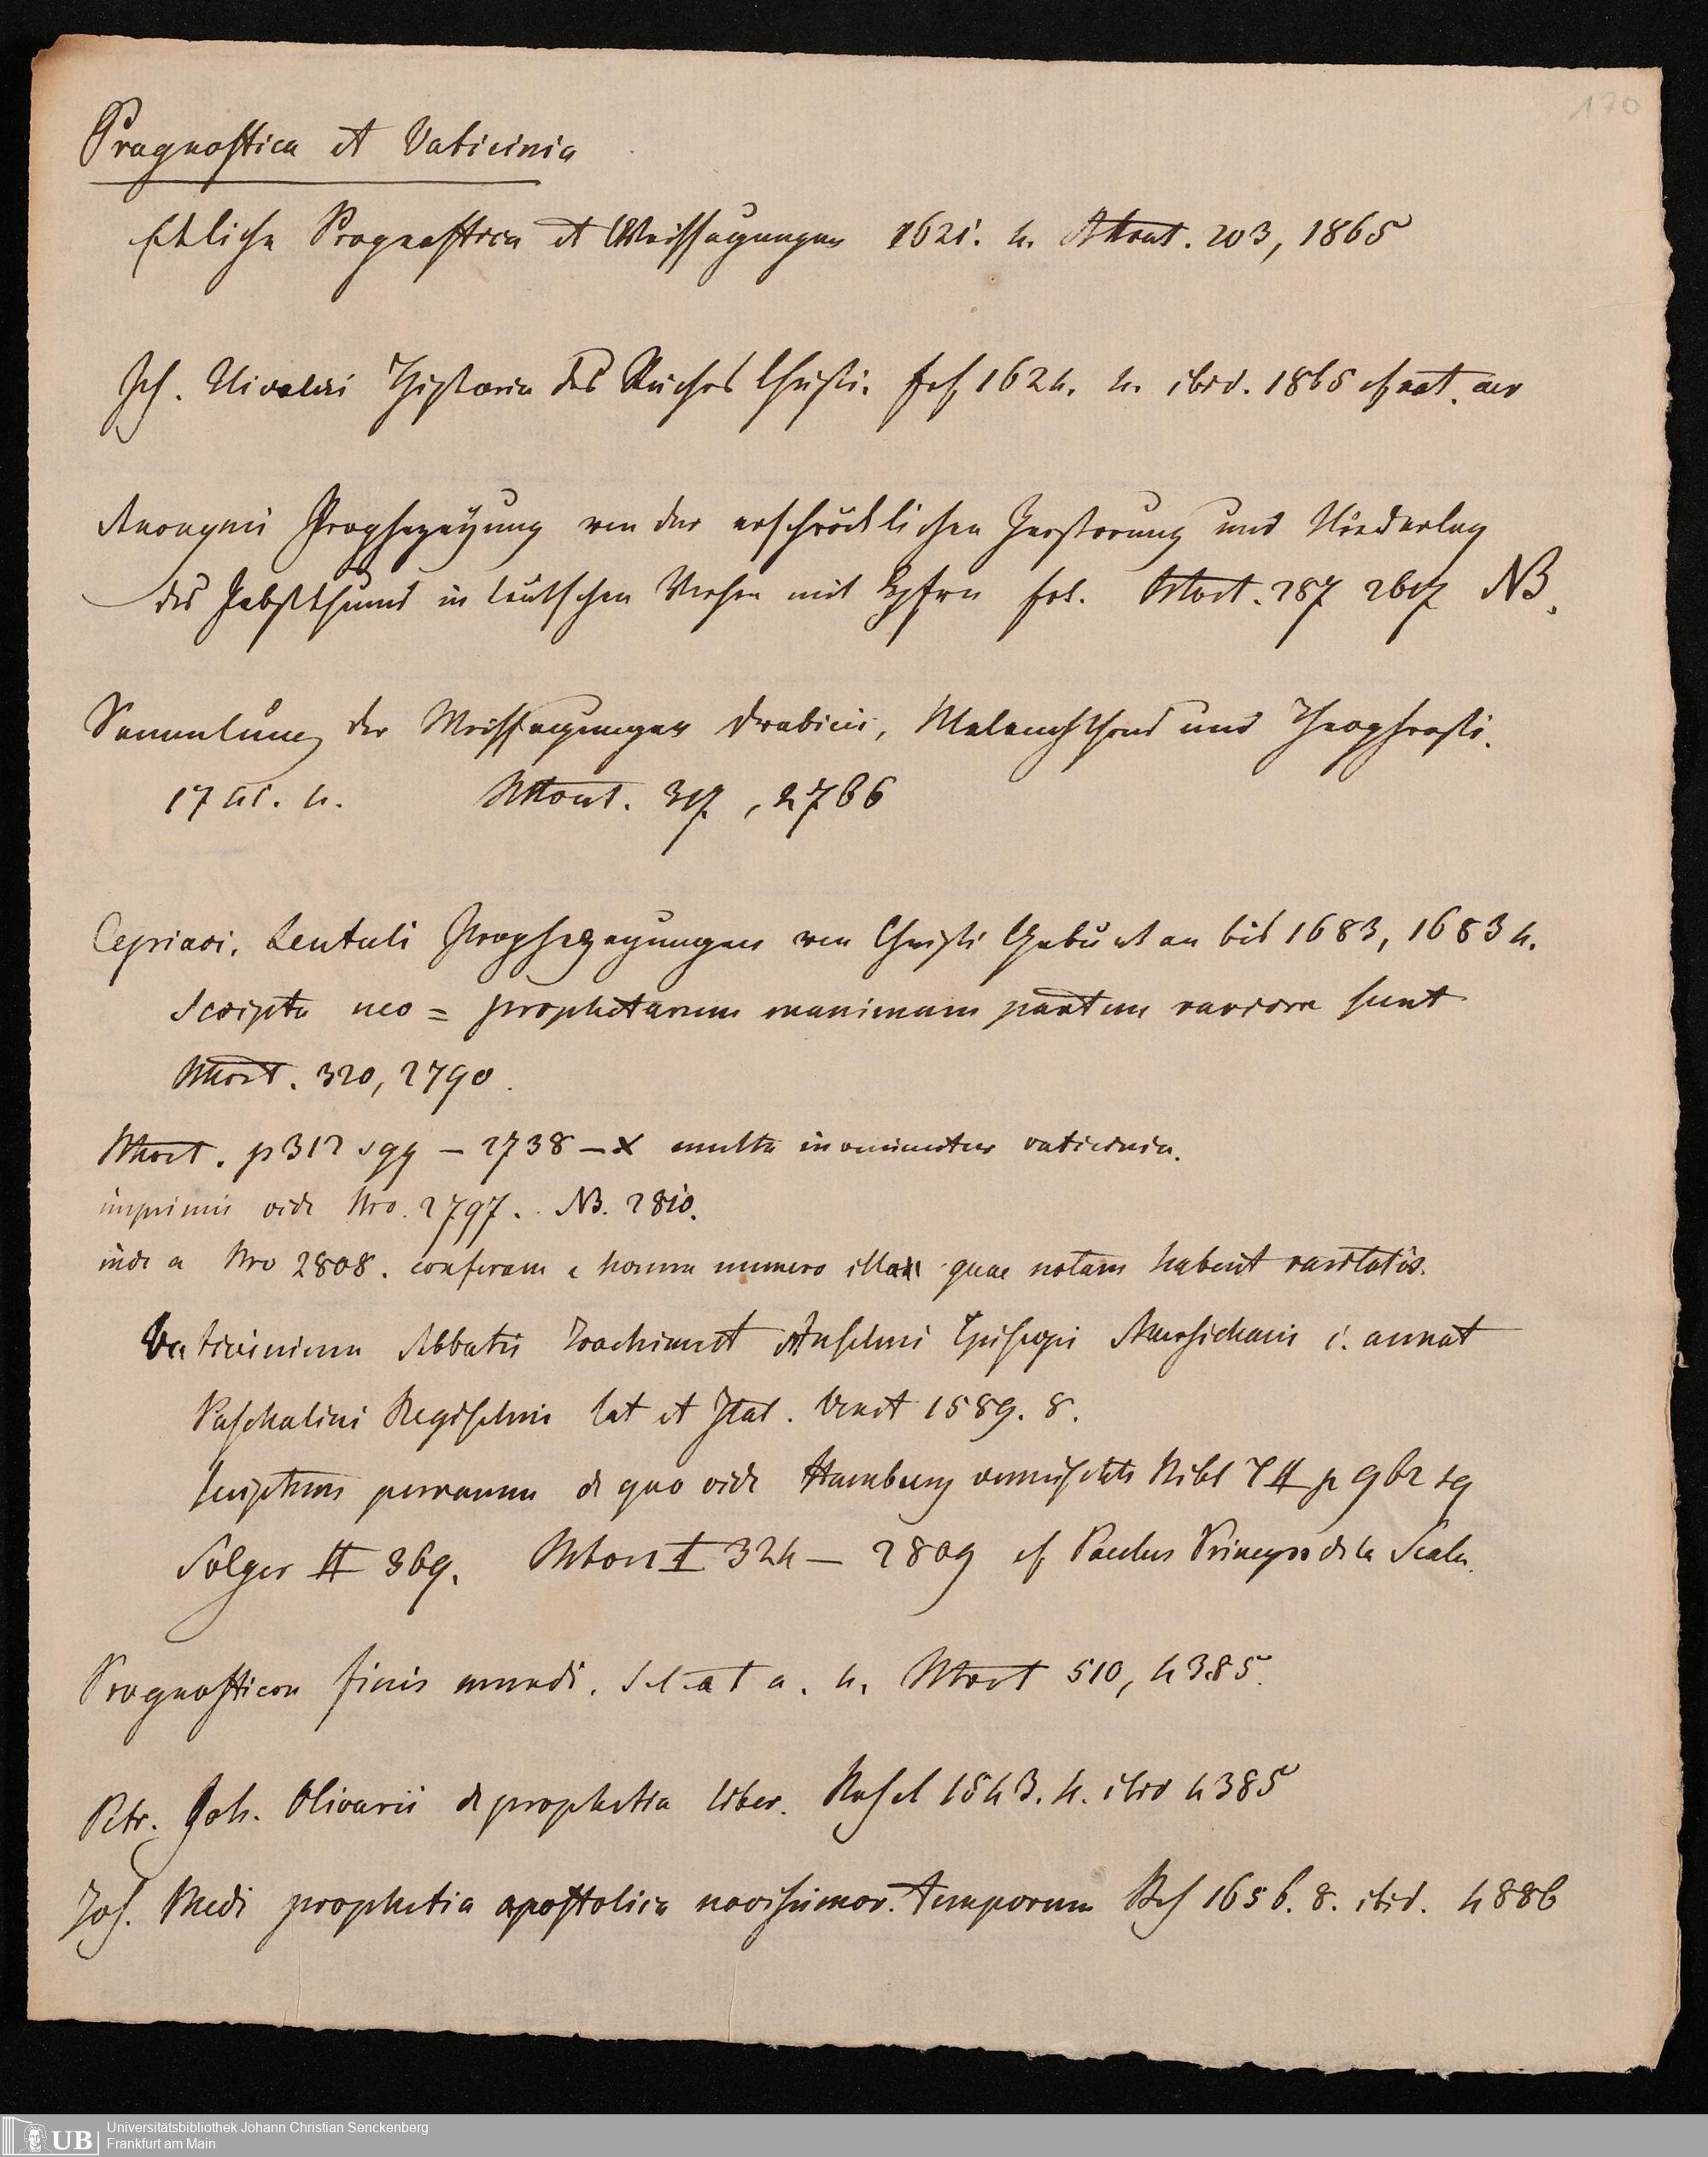 170
Prognostica et Vaticinia
Etliche Prognostica et Weissagungen 1621. 4. Mont. 203, 1865
Joh. Nivalii Historia des Reiches Christi. 1624. 4. ibid. 1865
Anonymi Prophezeÿung von der erschröcklichen Zerstorung und Niederlag
des Pabstthums in teutschen Versen mit Kpfrn fol. Mort. 287 2617 NB.
Sammlung der Weissagungen Drabicii, Melanchthons und Theophrasti.
1741. 4. Mont. 317, 2786
Cypriani. Lentuli Prophezeyungen von Christi Geburt an bis 1683, 1683 4.
Scripta neo = prophetarum maximam partem rariora sunt
Mort. 320, 2790.
Mort. p 312 sqq – 2738 – x multa inveniuntur vaticinia.
imprimis vide Nro. 2797. NB. 2810.
inde a Nro 2808. conferam e horum numero illa quae notam habent raritatis.
Vaticinium Abbatis Joachimi et Anselmi Episcopi Marsichani c. annot
Paschalini Regiselmi lat et Ital. Venet 1589. 8.
scriptum perrarum de quo vide Hamburg vermischte Bibl T II p 962 sq
Solger II 369. Mort I 324 – 2809 cf Paulus Princeps de la Scala.
Prognosticon finis mundi. S. l. et a. 4. Mort 510, 4385.
Petr. Joh. Olivarii de prophetia liber. Basel 1543. 4. ibid 4385
Jos. Medi prophetia apostolica novissimor. temporum 1656. 8. ibid. 4886
UB
Universitätsbibliothek Johann Christian Senckenberg
Frankfurt am Main